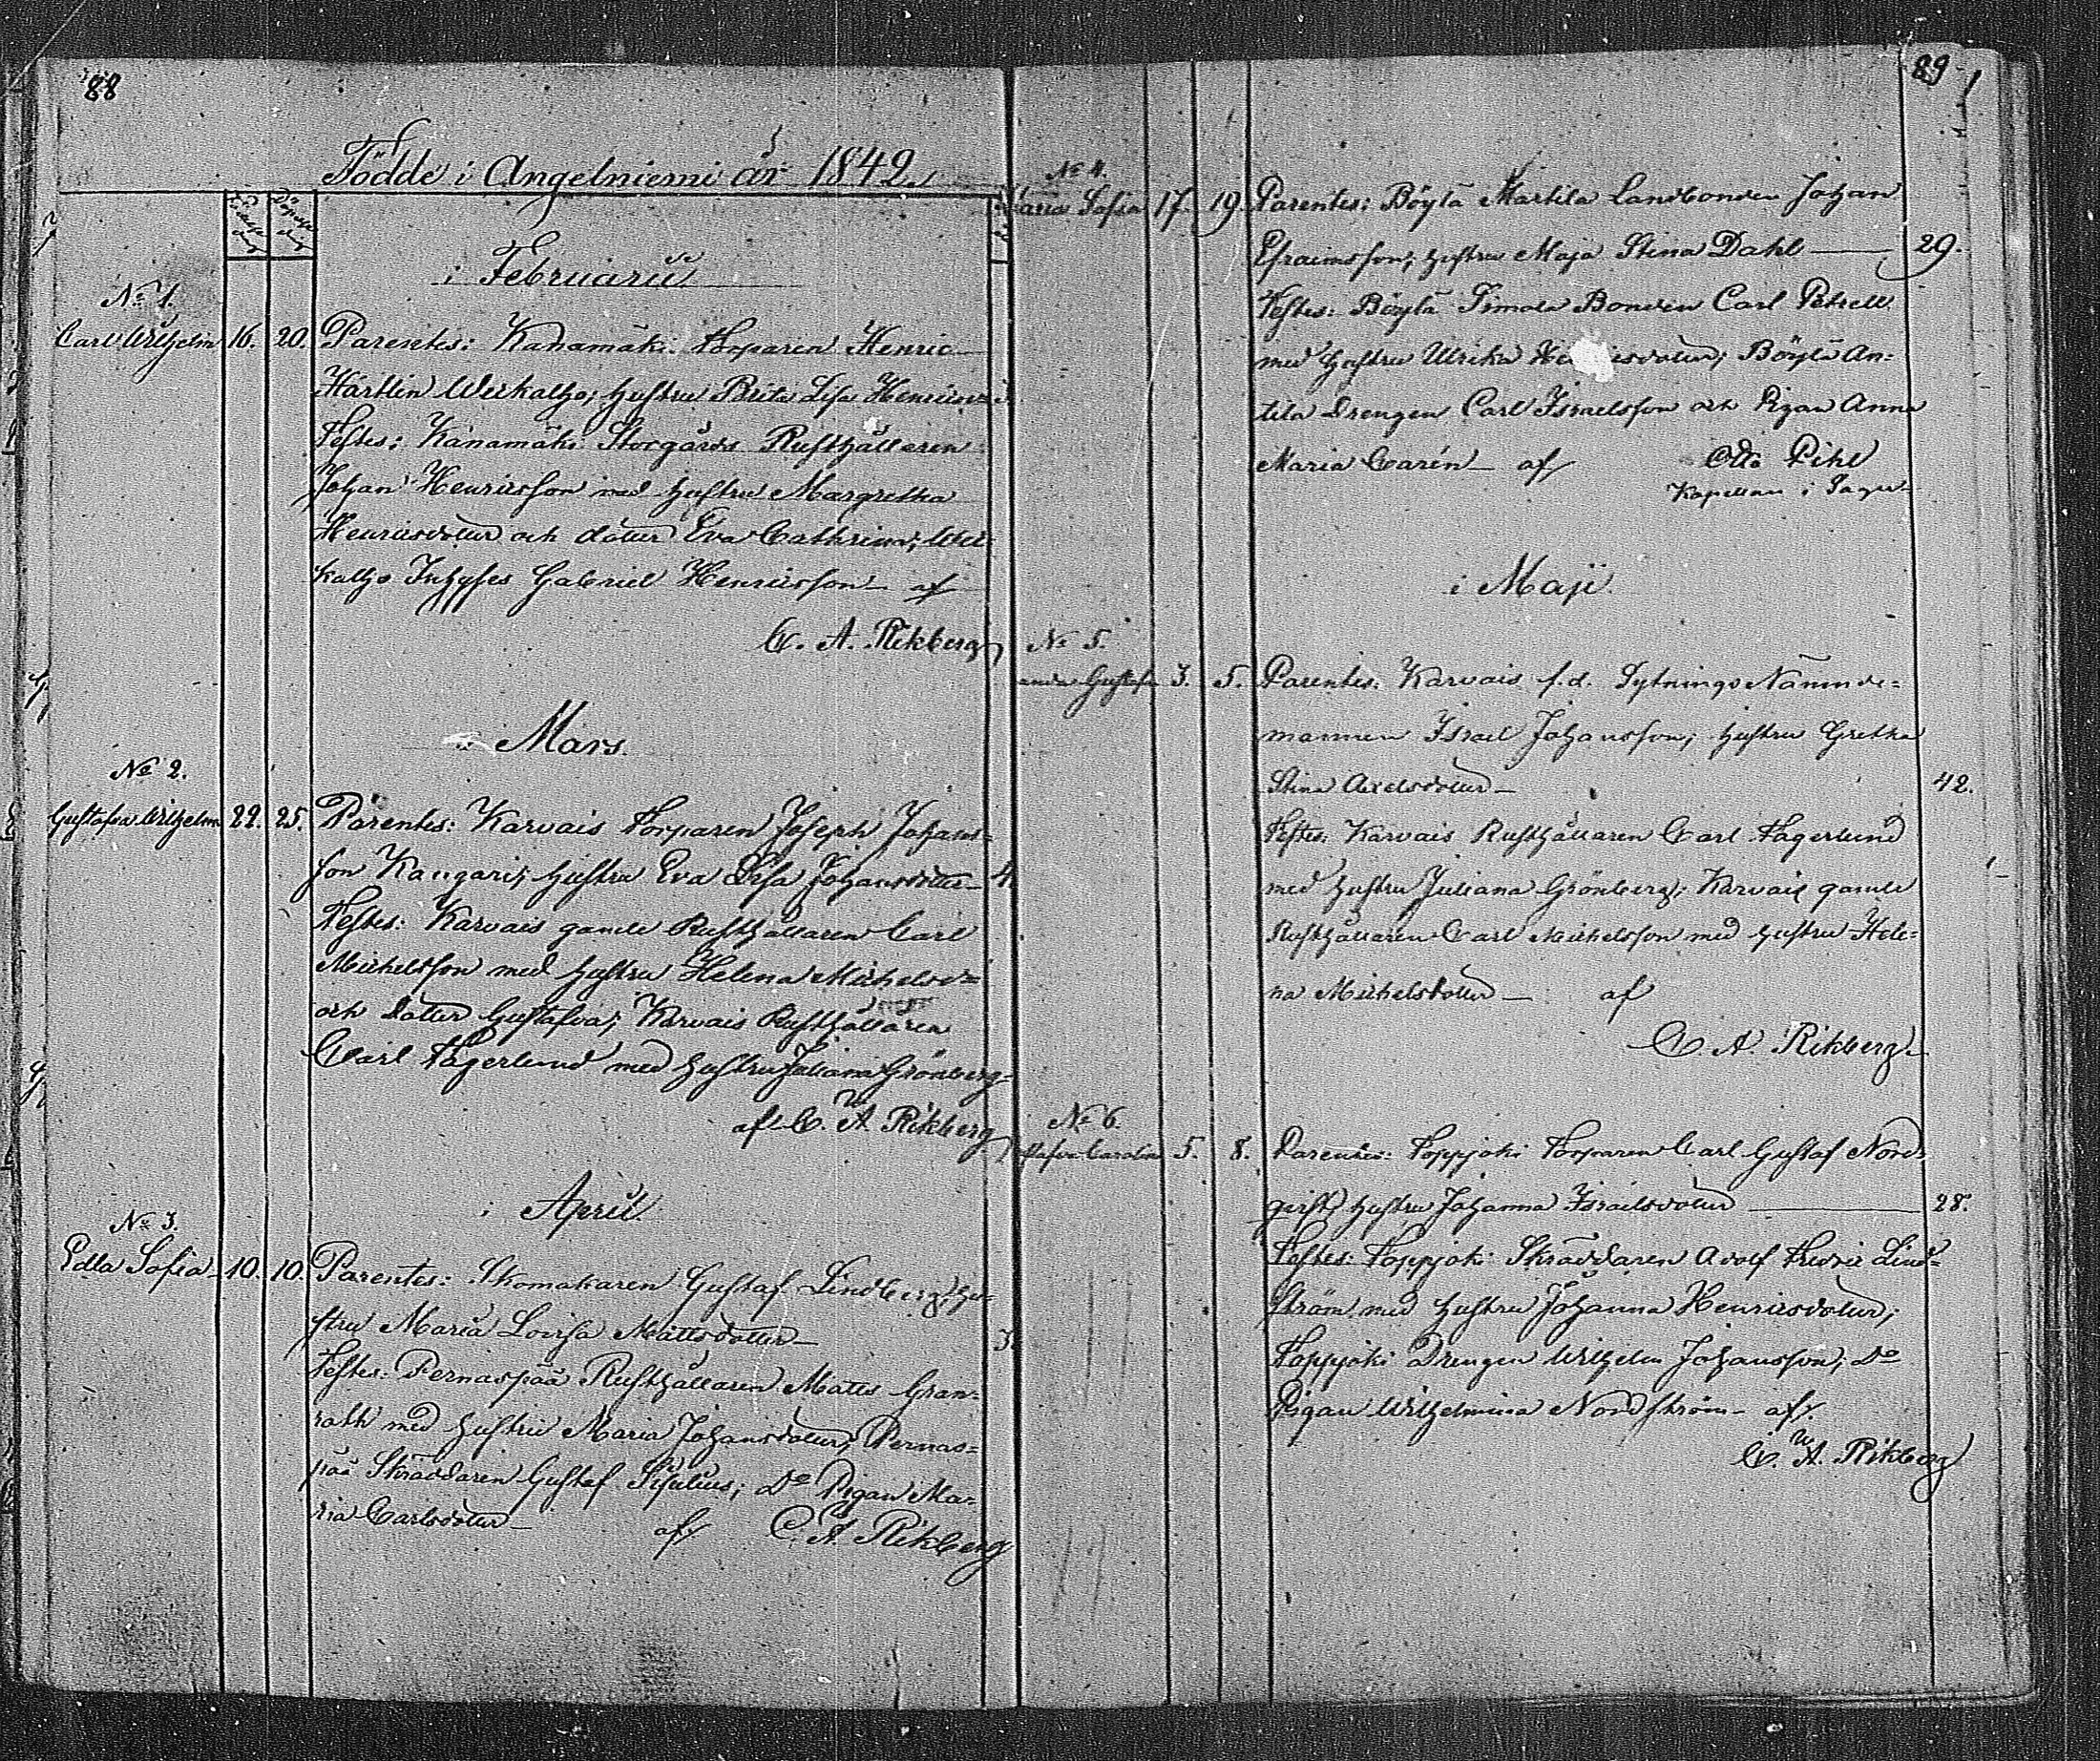 88
Födde i Angelniemi år 1842.
Födelse dag
Döpelse dag
i Februarii
No 1.
Carl Wilhelm 16. 20. Parentes: Kanamäki Torparen Henric
Härtlin Weikaltjo; hustru Brita Lisa Henricsd=
Testes: Kanamäki Storgårds Rusthållaren
Johan Henricsson med hustru Margretha
Henricsdotter och dotter Eva Cathrina; Wei-
kaltjo Inhyses Gabriel Henricsson – af
C. A. Rikberg
i Mars.
No 2.
Gustafva Wilhelm 22. 25. Parentes: Karvais Torparen Joseph Johans=
son Kangari; hustru Eva Lisa Johansdotter – 4
Testes: Karvais gamle Rusthållaren Carl
Michelsson med hustru Helena Michelsd=
och dotter Gustafva; Karvais Rusthållaren
Carl Fagerlund med hustru Juliana Grönberg-
af C. A. Rikberg
i April.
No 3.
Edla Sofia 10. 10. Parentes: Skomakaren Gustaf Lindberg; hu-
stru Maria Lovisa Mattsdotter – 3
Testes: Pernaspää Rusthållaren Matts Gran-
rath med hustru Maria Johansdotter; Pernas=
pää Skräddaren Gustaf Sisulius; Do Pigan Ma-
ria Carlsdotter – af C. A. Rikberg
89
No 4.
Maria Sofia 17. 19. Parentes: Böylä Martila Landbonden Johan
Efraimsson; hustru Maja Stina Dahl — 29.
Testes: Böylä Simola Bonden Carl Petrell
med hustru Ulrika; Böylä An-
tila Drengen Carl Israelsson och Pigan Anna
Maria Carén – af Otto Pihl
Kapellan i
i Maji.
No 5.
anda Gustafva 3. 5. Parentes: Karvais f.d. Sytnings Nämnde=
mannen Israel Johansson; hustru Gretha
Stina Axelsdotter – 42.
Testes: Karvais Rusthållaren Carl Fagerlund
med hustru Juliana Grönberg; Karvais gamle
Rusthållaren Carl Michelsson med hustru Hele-
na Michelsdotter – af
C. A. Rikberg
No 6.
stafva Carolin 5. 8. Parentes: Toppjoki Torparen Carl Gustaf Nord-
qvist; hustru Johanna Israelsdotter — 28.
Testes: Toppjoki Skräddaren Adolf Fredric Lind=
ström med hustru Johanna Henricsdotter;
Toppjoki Drengen Wilhelm Johansson; Do
Pigan Wilhelmina Nordström – af
C. A. Rikberg